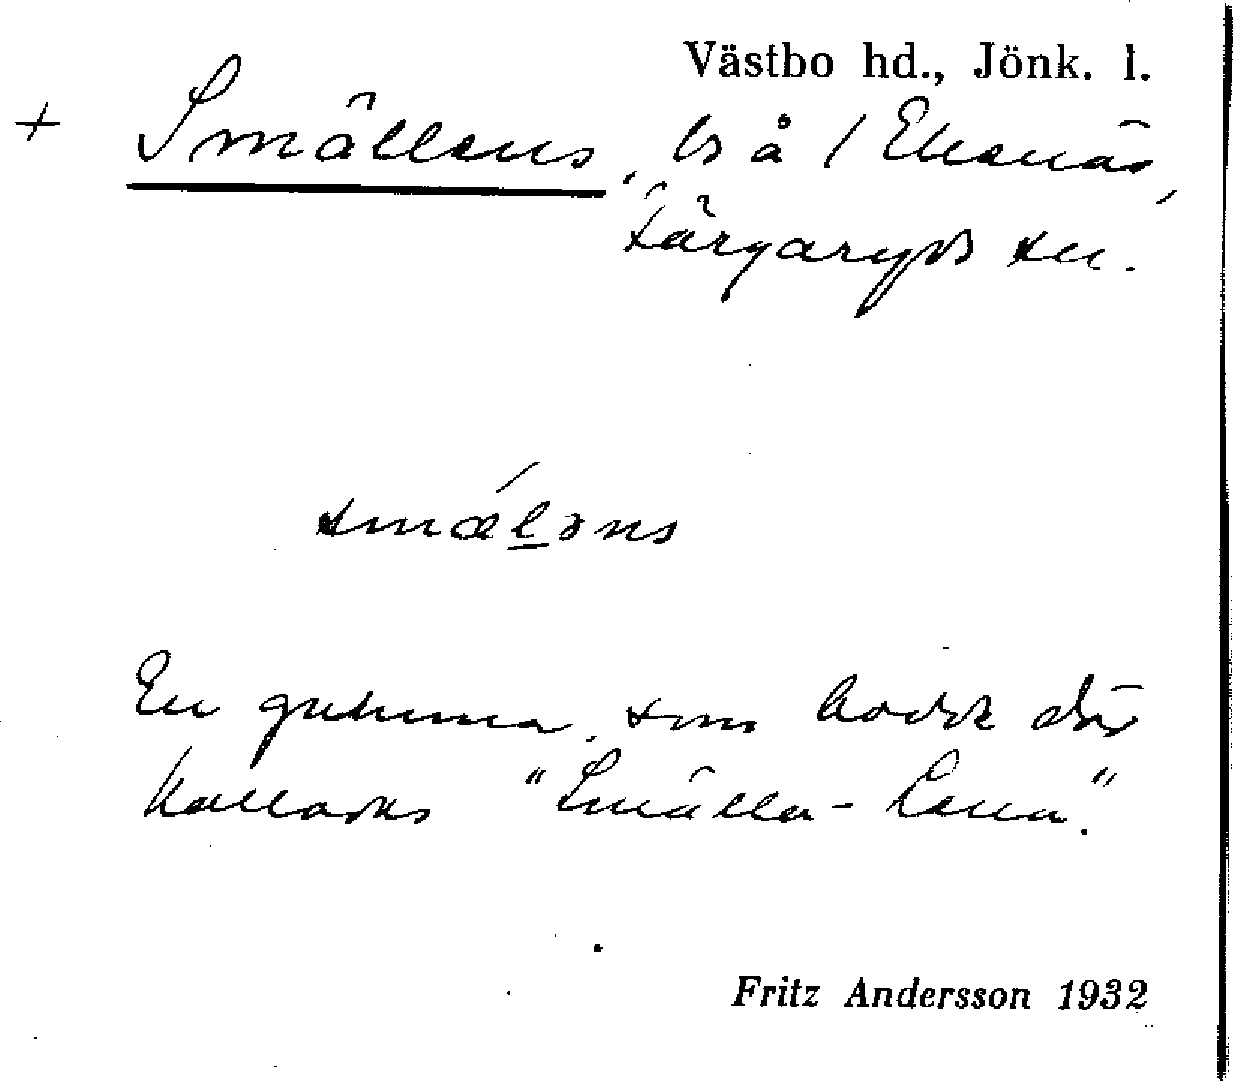 Västbo hd., Jönk. l.
+ Smällens, ls å 1 Ekenäs,
Färgaryds sn.
smǽl̲əns
En gumma, som bodde där
kallades "Smälla-Lena".
Fritz Andersson 1932